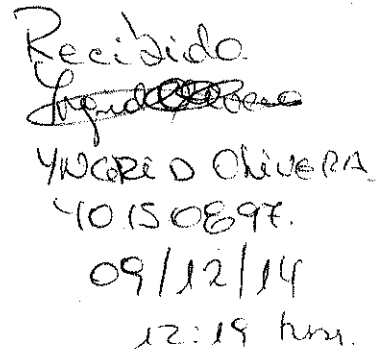 Recibido
YNGRID OLIVERA
40150897.
09/12/14
12:19 hrs.